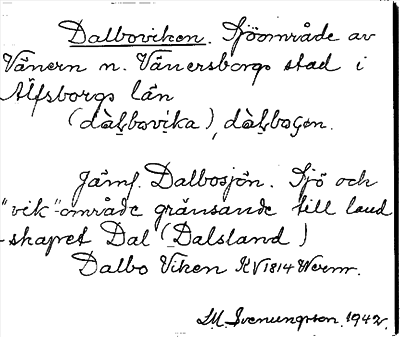 Dalboviken. Sjöområde av
Vänern n. Vänersborgs stad i
Älfsborgs län
(dàḷbovika), dàḷbogen.
Jämf. Dalbosjön. Sjö och
"vik"-område gränsande till land
-skapet Dal (Dalsland)
Dalbo Viken RV 1814 Werm.
S.M. Svenungsson. 1942.